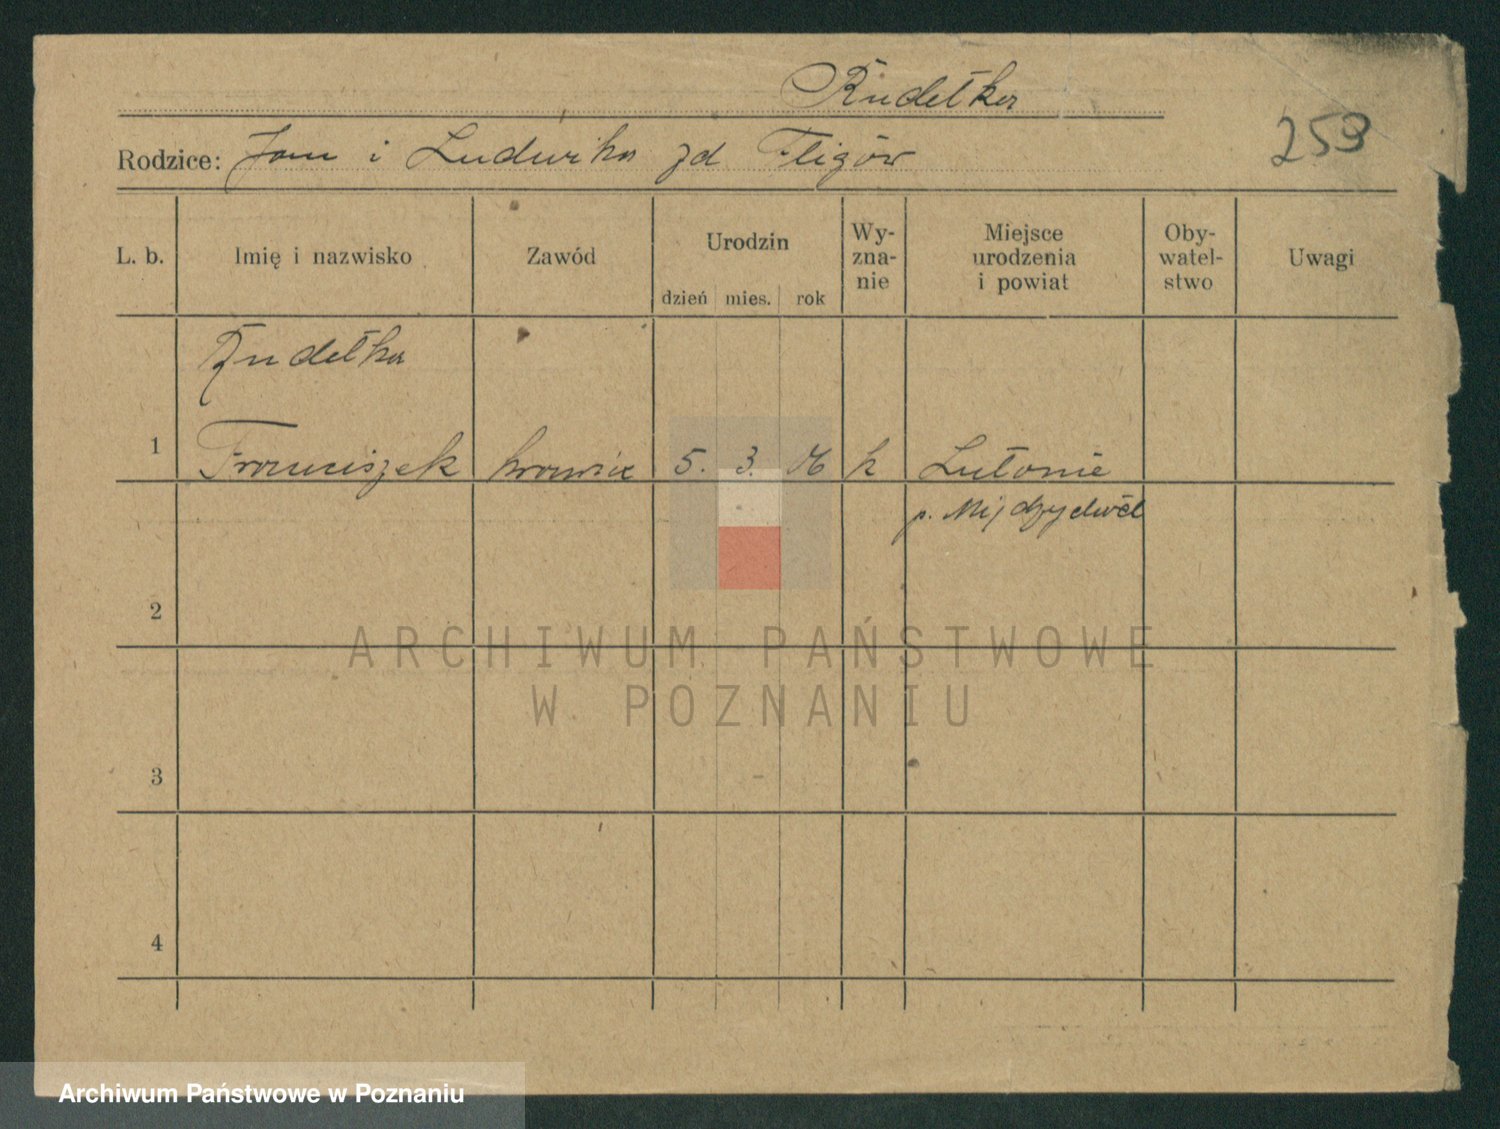 Rudełka
259
Rodzice: Jan i Ludwika zd Fligów
L. b.
Imię i nazwisko
Zawód
Urodzin
dzień mies. rok
Wy-
zna-
nie
Miejsce
urodzenia
i powiat
Oby-
watel-
stwo
Uwagi
Rudełka
1 Franciszek krawiec 5. 3. 06 k Lutonie
p. Międzychód
2
3
4
ARCHIWUM PAŃSTWOWE
W POZNANIU
Archiwum Państwowe w Poznaniu